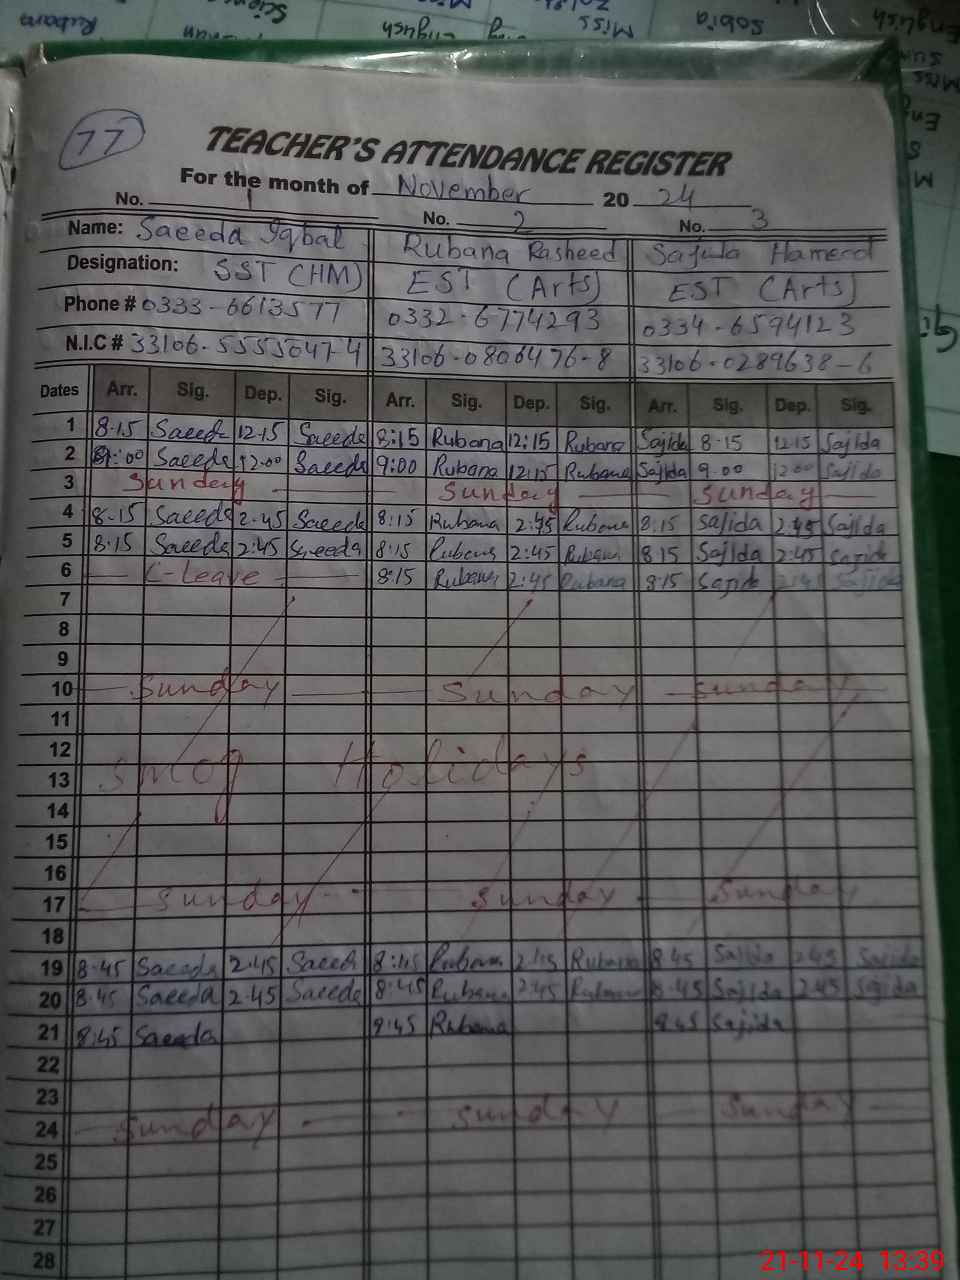 Miss
English
Sabia
77
TEACHER'S ATTENDANCE REGISTER
For the month of November 20 24
No. 1 No. 2 No. 3
Name: Saeeda Iqbal Rubana Rasheed Sajida Hameed
Designation: SST (HM) EST (Arts) EST (Arts)
Phone # 0333-6613577 0332-6774293 0334-6594123
N.I.C # 33106-5555047-4 33106-0806476-8 33106-0289638-6
Dates Arr. Sig. Dep. Sig. Arr. Sig. Dep. Sig. Arr. Sig. Dep. Sig.
1 8-15 Saeeda 12-15 Saeeda 8:15 Rubana 12:15 Rubana Sajida 8-15 12-15 Sajida
2 9:00 Saeeda 12-00 Saeeda 9:00 Rubana 12:15 Rubana Sajida 9-00 12-00 Sajida
3 Sunday Sunday Sunday
4 8-15 Saeeda 2-45 Saeeda 8:15 Rubana 2:45 Rubana 8:15 Sajida 2:45 Sajida
5 8:15 Saeeda 2:45 Saeeda 8:15 Rubana 2:45 Rubana 8:15 Sajida 2:45 Sajida
6 C-Leave 8:15 Rubana 2:45 Rubana 8:15 Sajida 2:45 Sajida
7
8
9
10 Sunday Sunday Sunday
11
12
smog Holidays
13
14
15
16
17 Sunday Sunday Sunday
18
19 8-45 Saeeda 2-45 Saeeda 8:45 Rubana 2:45 Rubana 8:45 Sajida 2:45 Sajida
20 8-45 Saeeda 2-45 Saeeda 8:45 Rubana 2:45 Rubana 8:45 Sajida 2:45 Sajida
21 8:45 Saeeda 8:45 Rubana 8:45 Sajida
22
23
24 Sunday Sunday Sunday
25
26
27
28
21-11-24 13:39